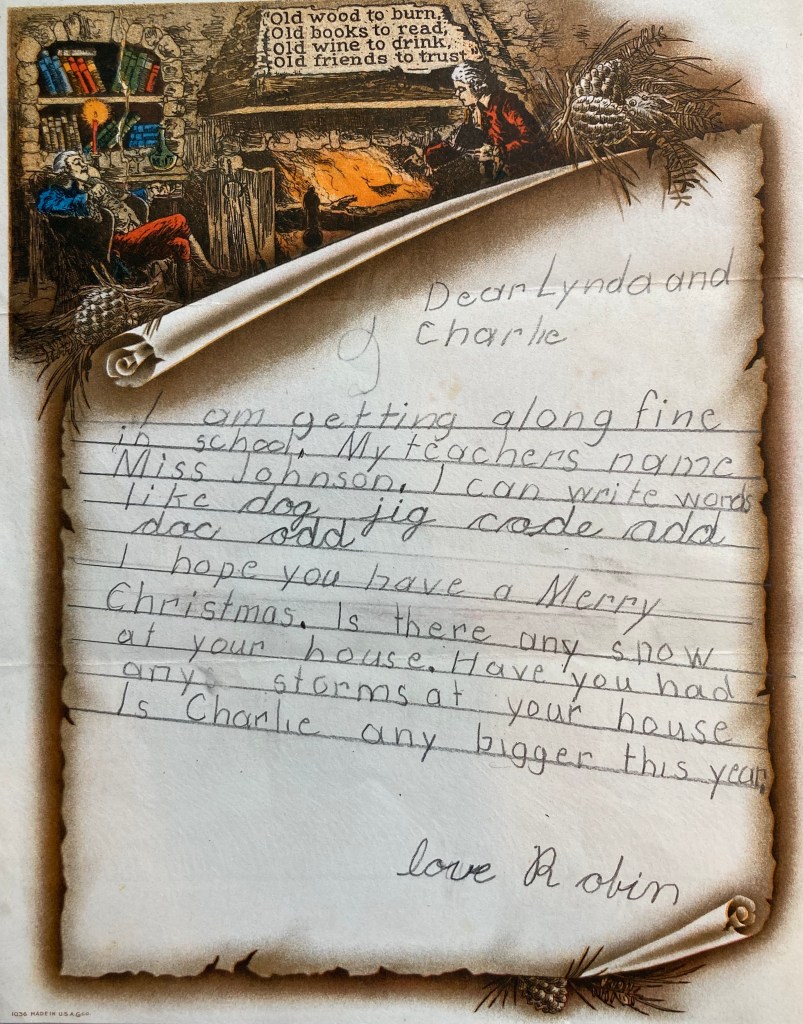 Old wood to burn,
Old books to read,
Old wine to drink,
Old friends to trust
Dear Lynda and
Charlie
I am getting along fine
in school. My teachers name
Miss Johnson. I can write words
like dog jig code add
doc odd
I hope you have a Merry
Christmas. Is there any snow
at your house. Have you had
any storms at your house
Is Charlie any bigger this year.
love Robin
1036 MADE IN U.S.A.